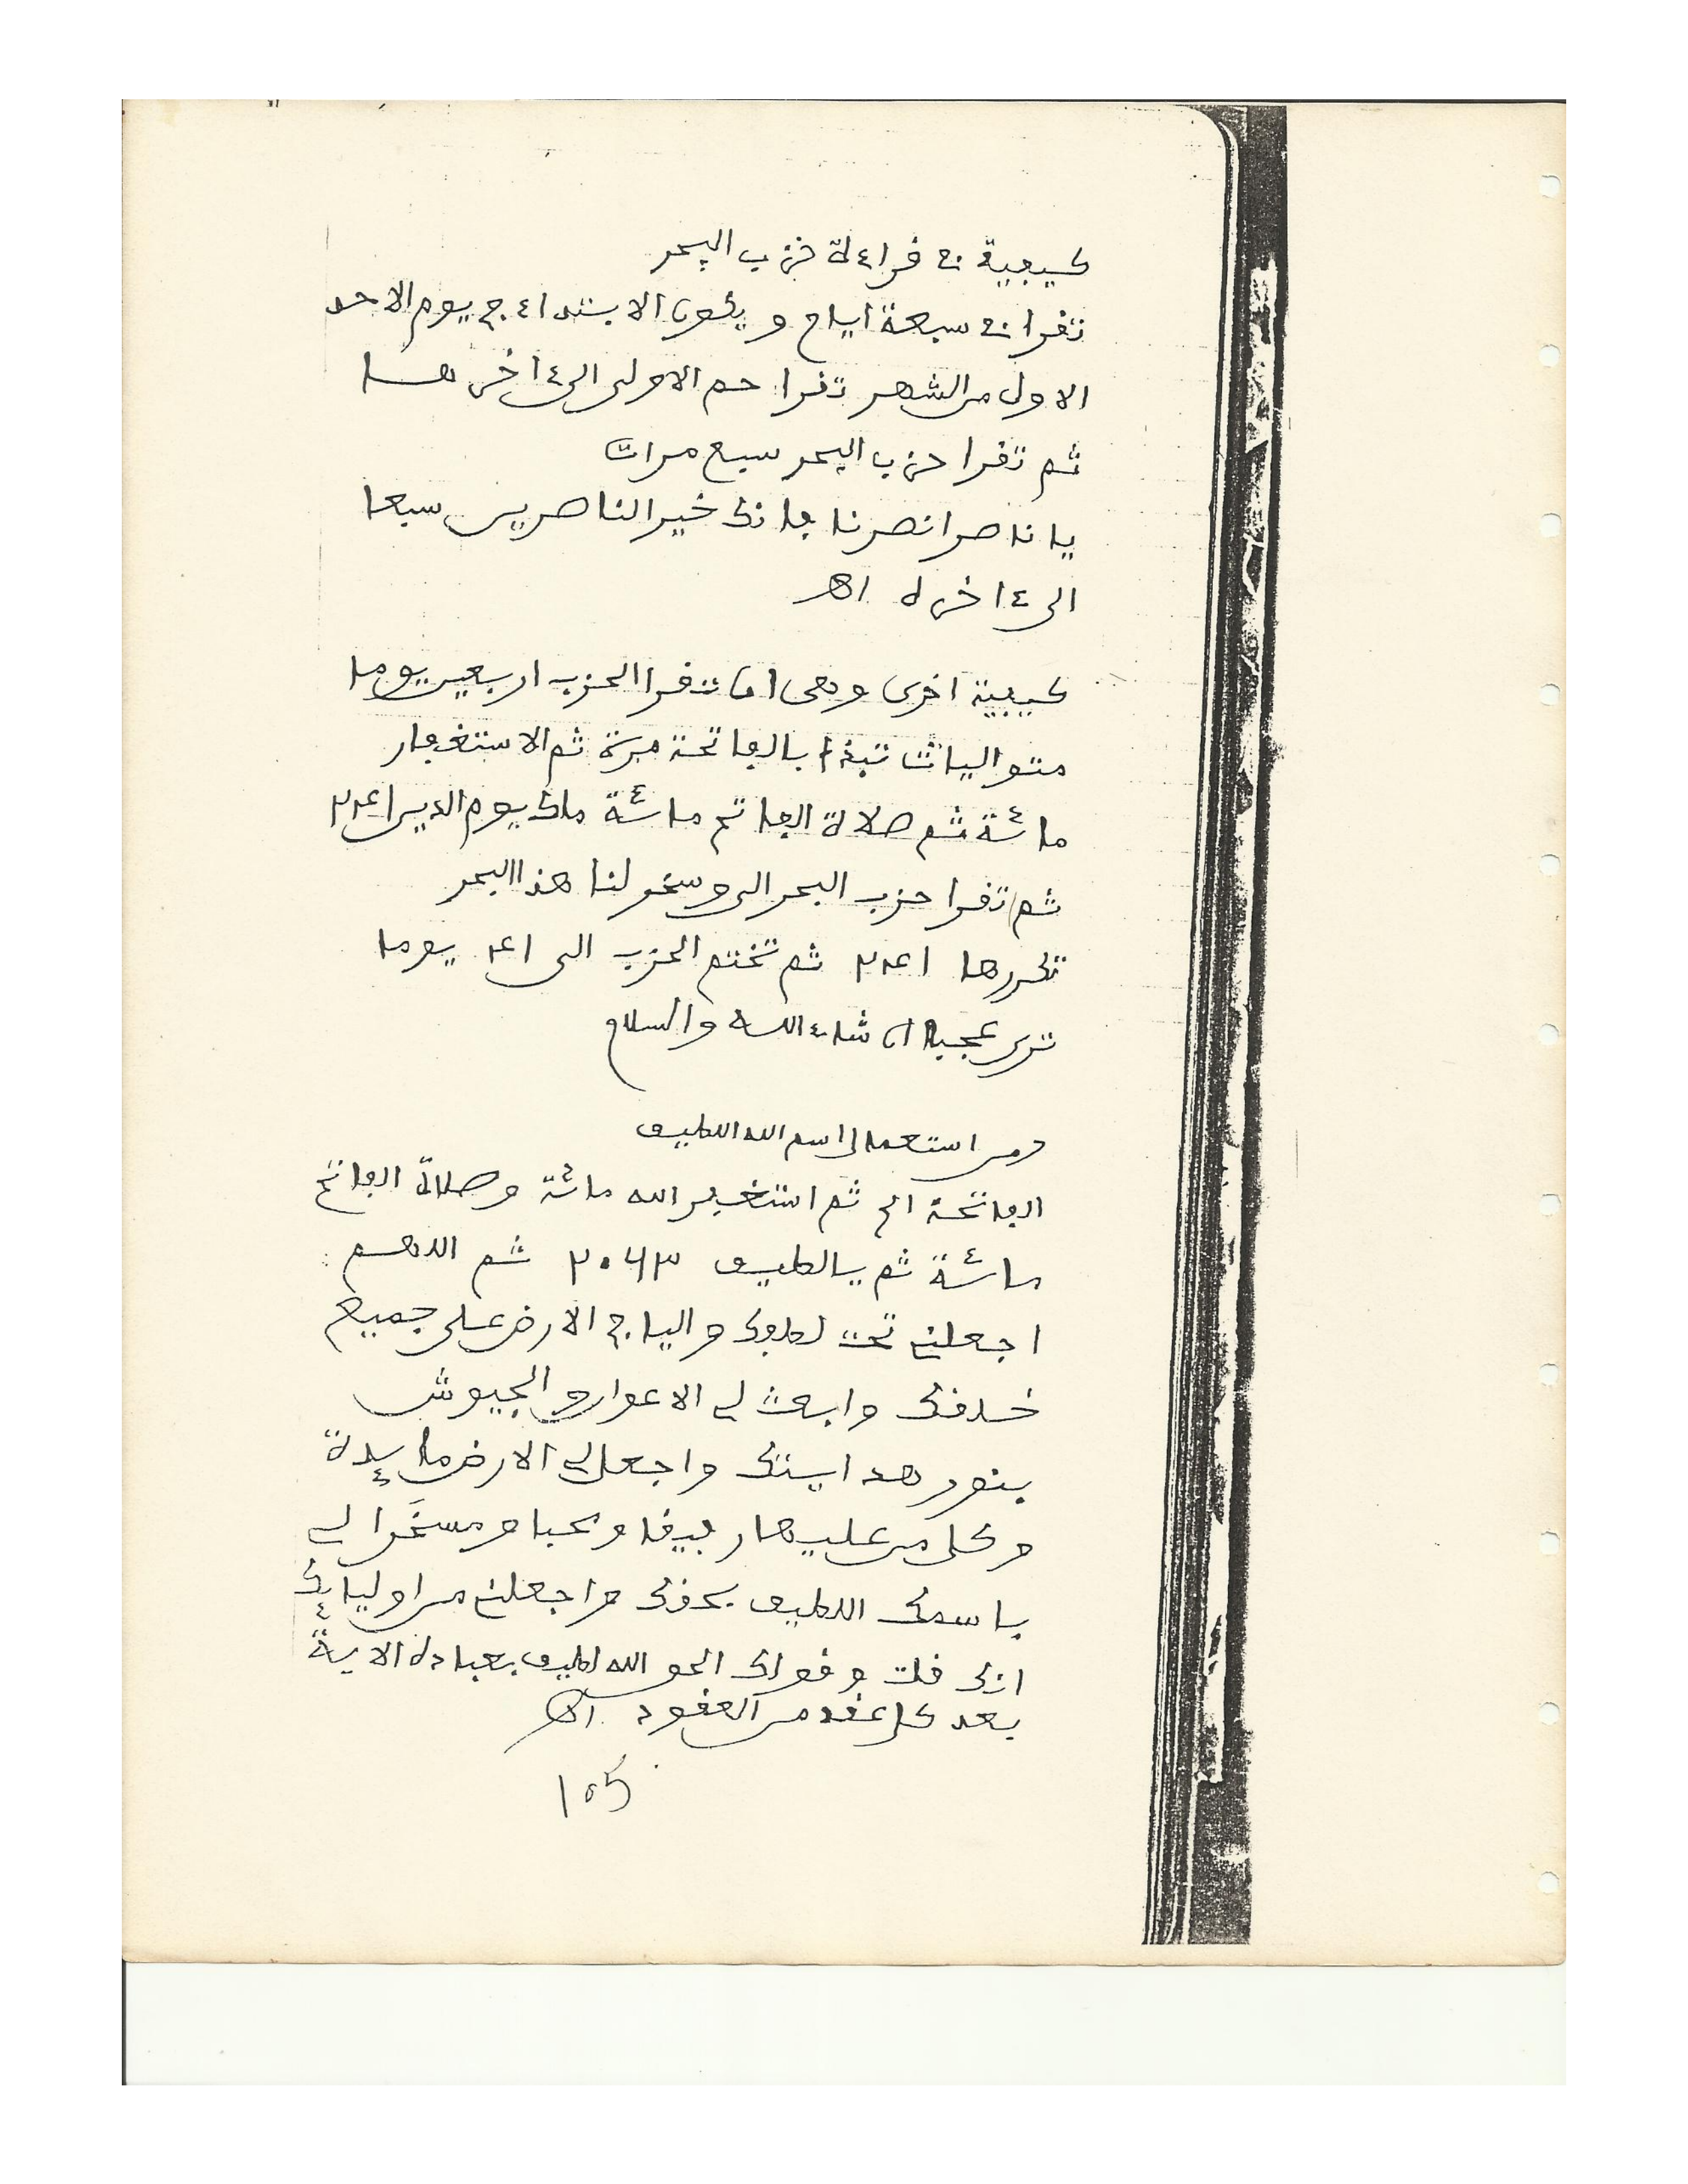 كيفية قراءة حزب البحر
تقرا سبعة ايام ويكون الابتداء في يوم الاحد
الاول من الشهر تقرا حم الاولى الى ءاخرها
ثم تقرا حزب البحر سبع مرات
يا ناصر انصرنا فانك خير الناصرين سبعا
الى ءاخره اهـ
كيفية اخرى وهى ان تقرا الحزب اربعين يوما
متواليات تبدا بالفاتحة مرة ثم الاستغفار
مائة ثم صلاة الفاتح مائة ملك يوم الدين
ثم تقرا حزب البحر الى وسخر لنا هذا البحر
تكررها ثم تختم الحزب الى يوما
ترى عجبا ان شاء الله والسلام
ومن استعمال اسم الله اللطيف
الفاتحة ثم استغفر الله مائة وصلاة الفاتح
مائة ثم يالطيف ثم اللهم
اجعلنى تحت لطفك في الارض على جميع
خلقك وابعث لى الاعوان والجيوش
بنور هدايتك واجعل لى الارض مايدة
وكل من عليها رفيقا ومحبا ومسخَّرا لى
باسمك اللطيف بحقك واجعلنى من اوليائك
انك قلت وقولك الحق الله لطيف بعباده الاية
بعد كل عقد من العقود اهـ
105